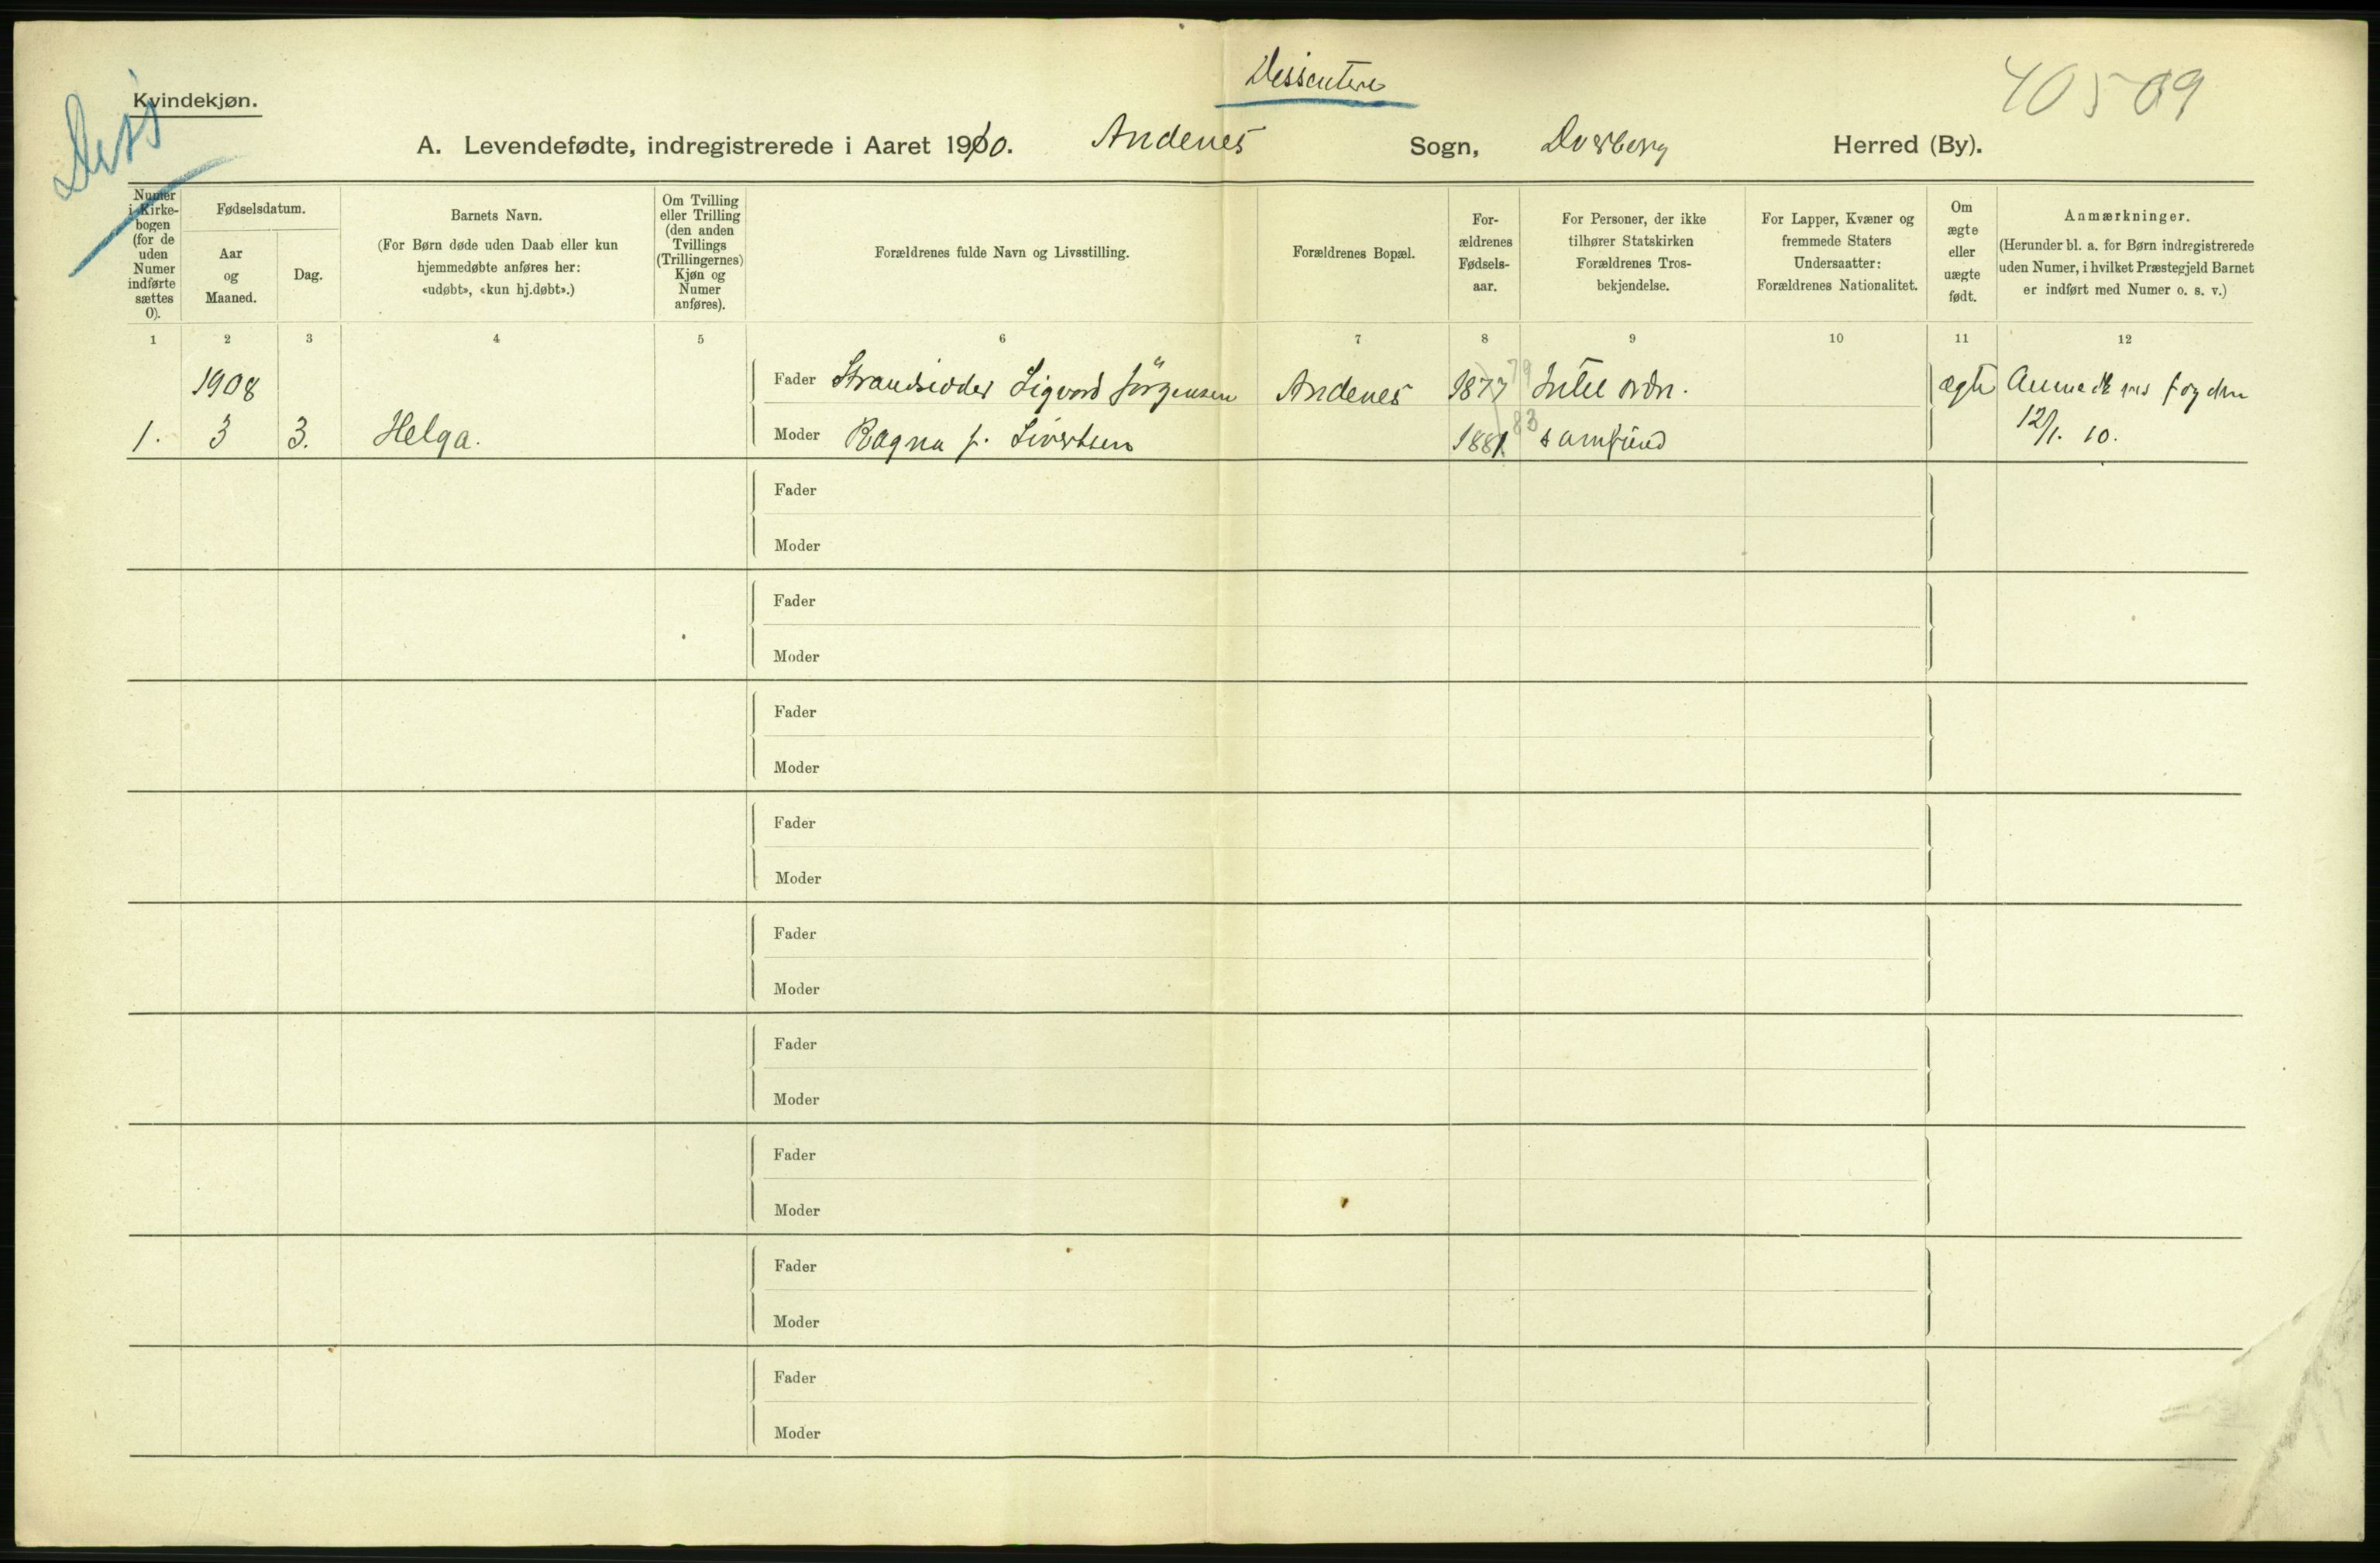 Dissentere
40509
Diss
Kvindekjøn.
A. Levendefødte, indregistrerede i Aaret 1910. Andenes Sogn, Dverberg Herred (By).
Numer i Kirkebogen (for de uden Numer indførte sættes 0).
Fødselsdatum.
Aar og Maaned.
Dag.
Barnets Navn.
(For Børn døde uden Daab eller kun
hjemmedøbte anføres her:
«udøbt», «kun hj.døbt».)
Om Tvilling
eller Trilling
(den anden
Tvillings
(Trillingernes)
Kjøn og
Numer
anføres).
Forældrenes fulde Navn og Livsstilling.
Forældrenes Bopæl.
For-
ældrenes
Fødsels-
aar.
For Personer, der ikke
tilhører Statskirken
Forældrenes Tros-
bekjendelse.
For Lapper, Kvæner og
fremmede Staters
Undersaatter:
Forældrenes Nationalitet.
Om
ægte
eller
uægte
født.
Anmærkninger.
(Herunder bl. a. for Børn indregistrerede
uden Numer, i hvilket Præstegjeld Barnet
er indført med Numer o. s. v.)
1 2 3 4 5 6 7 8 9 10 11 12
1908 Fader Strandsidder Sigvard Jörgensen Andenes 1877 79 Intet ordn. ægte
1. 3 3. Helga. Moder Ragna f. Sivertsen 1881. 83 samfund 12/1. 10.
Fader
Moder
Fader
Moder
Fader
Moder
Fader
Moder
Fader
Moder
Fader
Moder
Fader
Moder
Fader
Moder
Fader
Moder